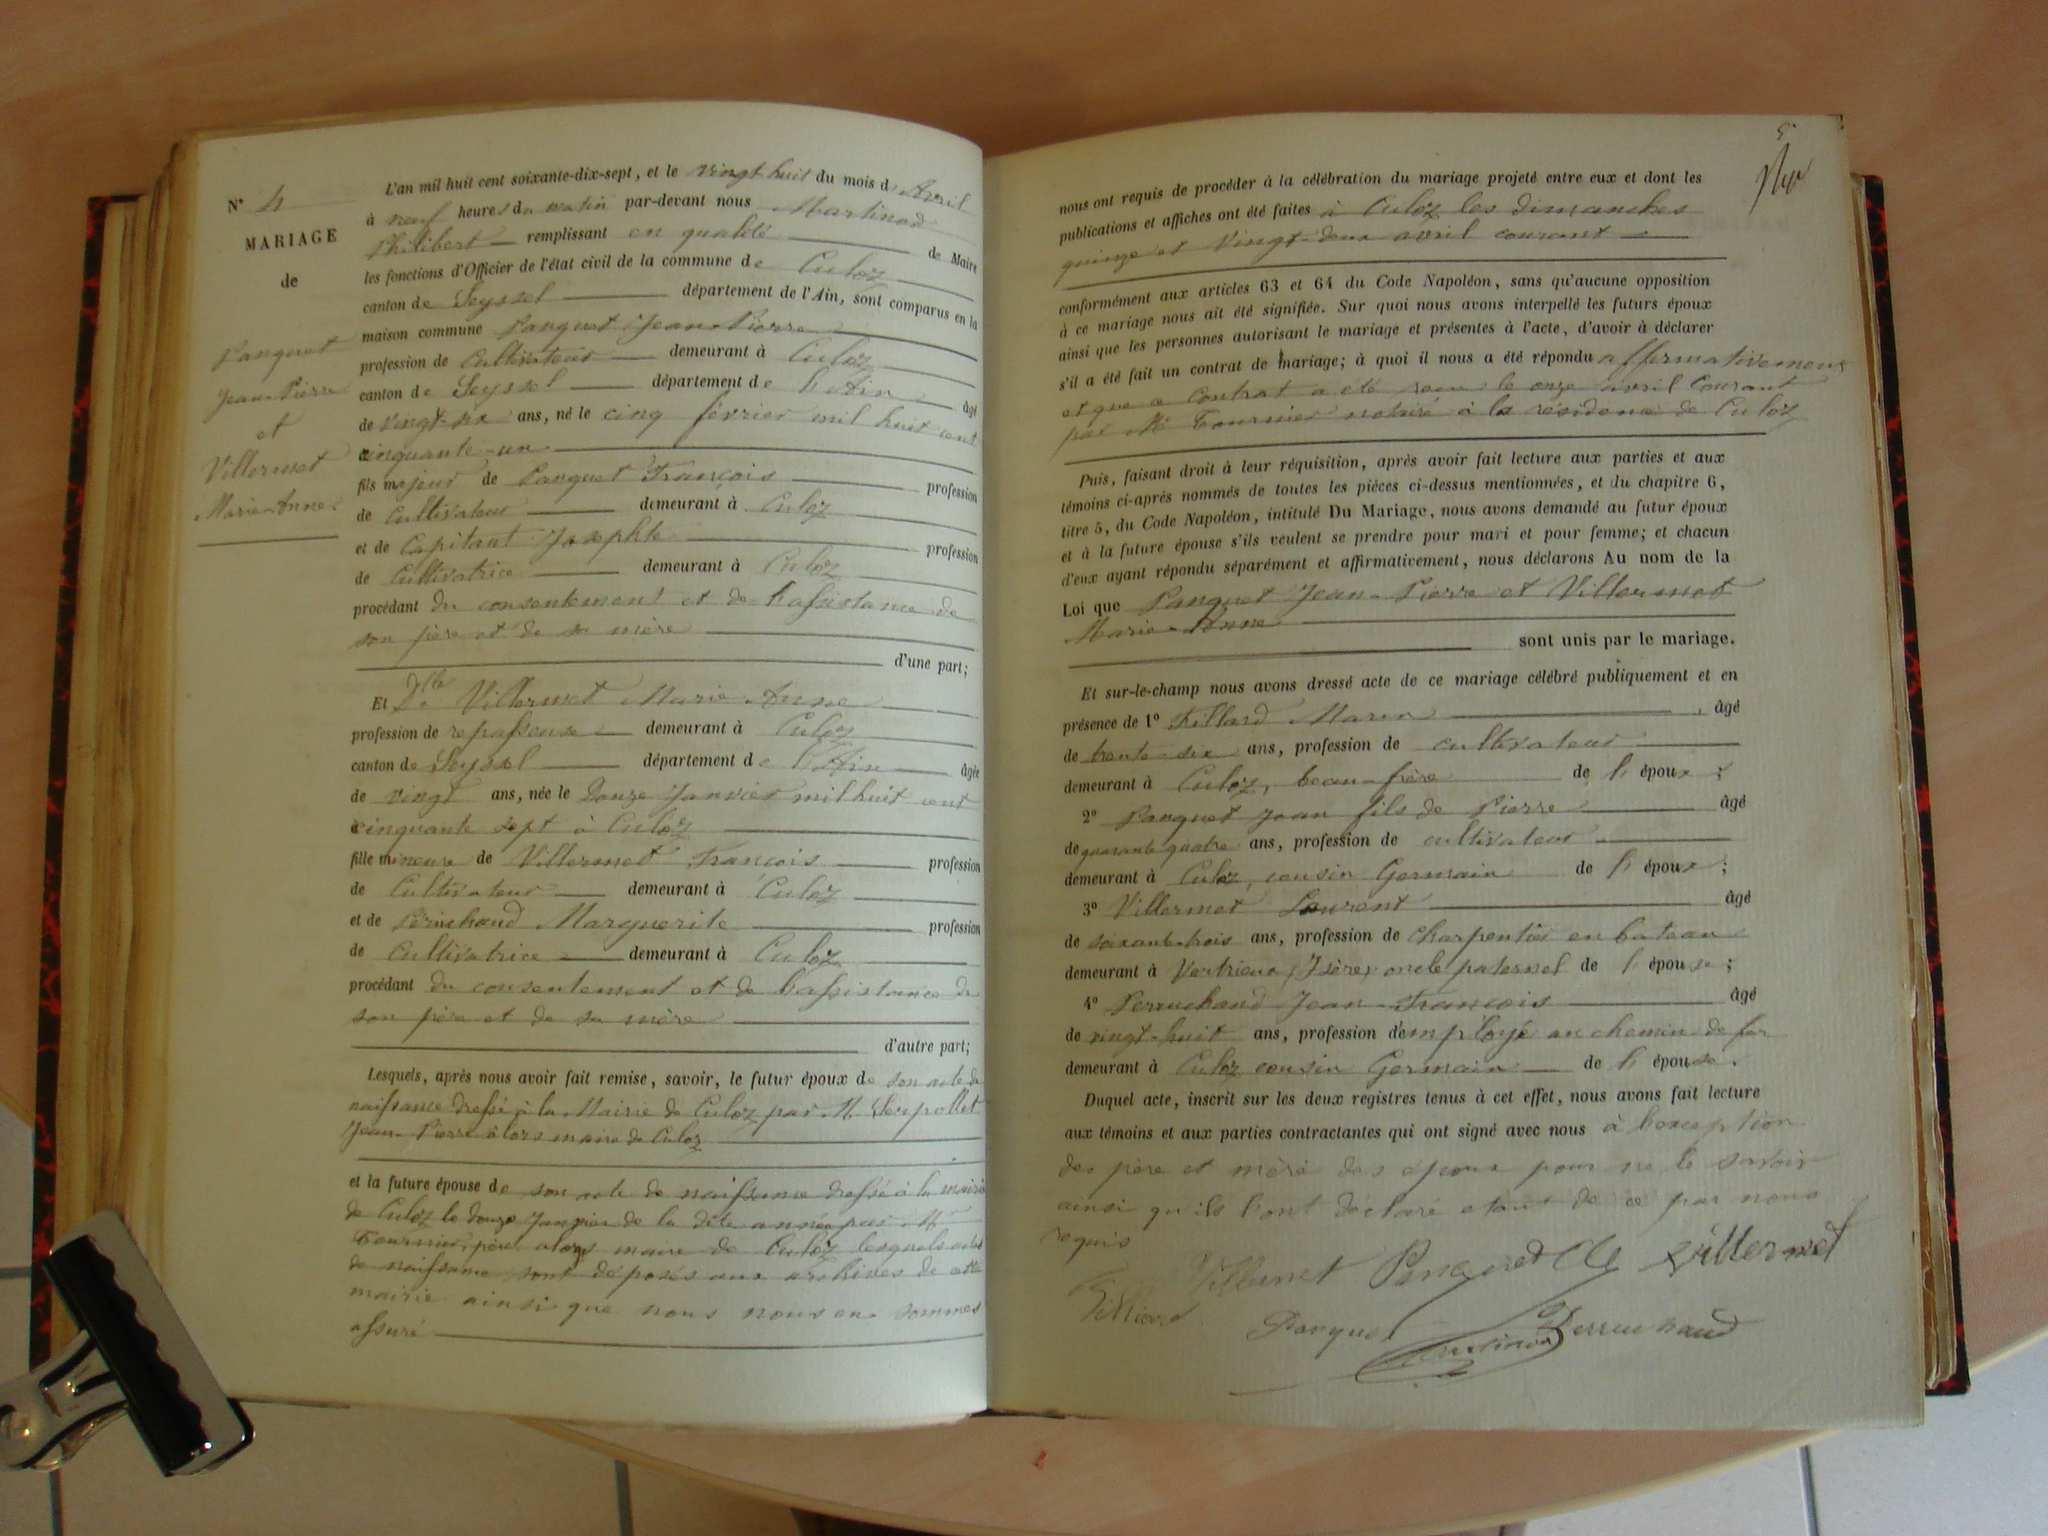 N° 4
MARIAGE
de
Panguet
Jean-Pierre
et
Villermet
Marie-Anne
L'an mil huit cent soixante-dix-sept, et le vingt huit du mois d'Avril
à neuf heures du matin par-devant nous Martinod
Philibert remplissant en qualité de Maire
les fonctions d'Officier de l'état civil de la commune de Culoz
canton de Seyssel département de l'Ain, sont comparus en la
maison commune Panguet Jean-Pierre
profession de Cultivateur demeurant à Culoz
canton de Seyssel département de l'Ain âgé
de vingt-six ans, né le cinq février mil huit cent
cinquante-un
fils majeur de Panguet François profession
de Cultivateur demeurant à Culoz
et de Capitant Josephte profession
de Cultivatrice demeurant à Culoz
procédant du consentement et de l'assistance de
son père et de sa mère
d'une part;
Et Dlle Villermet Marie Anne
profession de repasseuse demeurant à Culoz
canton de Seyssel département de l'Ain âgée
de vingt ans, née le Douze Janvier mil huit cent
cinquante sept à Culoz
fille mineure de Villermet François profession
de Cultivateur demeurant à Culoz
et de Perruchaud Marguerite profession
de Cultivatrice demeurant à Culoz
procédant du consentement et de l'assistance de
son père et de sa mère
d'autre part;
Lesquels, après nous avoir fait remise, savoir, le futur époux de son acte de
naissance dressé à la Mairie de Culoz par M. Serpollet
Jean-Pierre alors maire de Culoz
et la future épouse de son acte de naissance dressé à la mairie
de Culoz le douze Janvier de la dite année par Mr
Fournier, père, alors maire de Culoz lesquels actes
de naissance sont déposés aux archives de cette
mairie ainsi que nous nous en sommes
assuré
5
nous ont requis de procéder à la célébration du mariage projeté entre eux et dont les
publications et affiches ont été faites à Culoz les dimanches
quinze et Vingt-deux avril courant
conformément aux articles 63 et 64 du Code Napoléon, sans qu'aucune opposition
à ce mariage nous ait été signifiée. Sur quoi nous avons interpellé les futurs époux
ainsi que les personnes autorisant le mariage et présentes à l'acte, d'avoir à déclarer
s'il a été fait un contrat de mariage; à quoi il nous a été répondu affirmativement
et que ce Contrat a été reçu le onze avril Courant
par Me Fournier notaire à la résidence de Culoz
Puis, faisant droit à leur réquisition, après avoir fait lecture aux parties et aux
témoins ci-après nommés de toutes les pièces ci-dessus mentionnées, et du chapitre 6,
titre 5, du Code Napoléon, intitulé Du Mariage, nous avons demandé au futur époux
et à la future épouse s'ils veulent se prendre pour mari et pour femme; et chacun
d'eux ayant répondu séparément et affirmativement, nous déclarons Au nom de la
Loi que Panguet Jean-Pierre et Villermet
Marie-Anne
sont unis par le mariage.
Et sur-le-champ nous avons dressé acte de ce mariage célébré publiquement et en
présence de 1° Fillard âgé
de trente-six ans, profession de cultivateur
demeurant à Culoz, beau-frère de l'époux;
2° Panguet Jean fils de Pierre âgé
de quarante quatre ans, profession de cultivateur
demeurant à Culoz, cousin Germain de l'époux;
3° Villermet Laurent âgé
de soixante-trois ans, profession de charpentier en bateau
demeurant à Vertrieux (Isère) oncle paternel de l'épouse;
4° Perruchaud Jean-François âgé
de vingt-huit ans, profession d'employé au chemin de fer
demeurant à Culoz cousin Germain de l'épouse.
Duquel acte, inscrit sur les deux registres tenus à cet effet, nous avons fait lecture
aux témoins et aux parties contractantes qui ont signé avec nous à l'exception
des père et mère des époux pour ne le savoir
ainsi qu'ils l'ont déclaré étant de ce par nous
requis
Villermet Panguet Villermet
Panguet Martinod Perruchaud